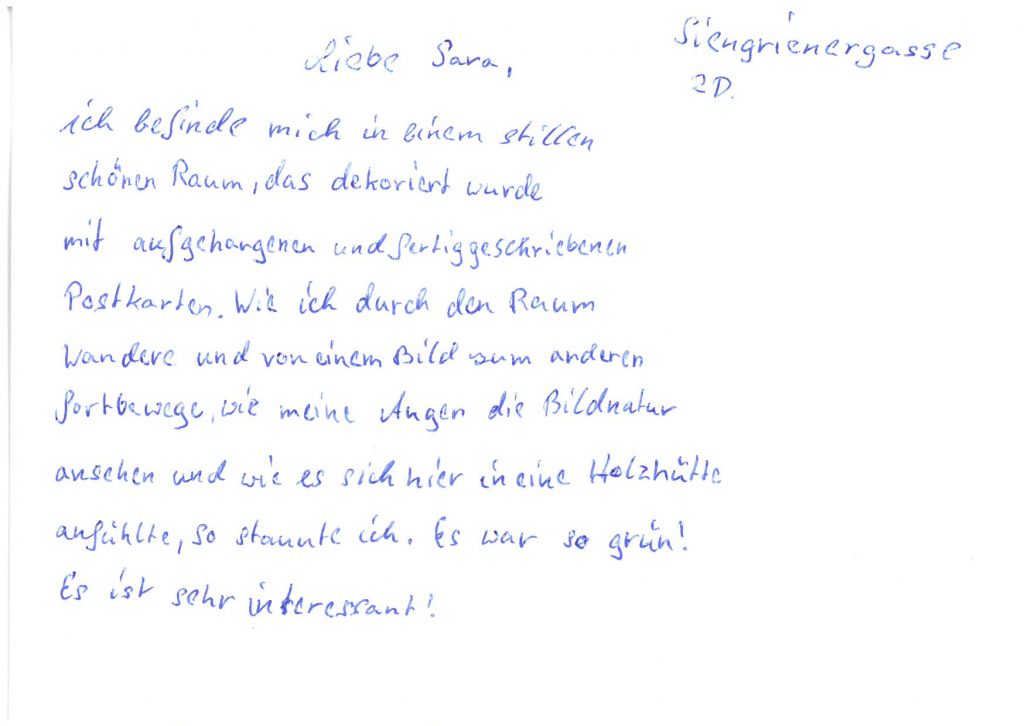 Siengrienergasse
2D.
Liebe Sara,
ich befinde mich in einem stillen
schönen Raum, das dekoriert wurde
mit aufgehangenen und fertiggeschriebenen
Postkarten. Wie ich durch den Raum
wandere und von einem Bild zum anderen
fortbewege, wie meine Augen die Bildnatur
ansehen und wie es sich hier in eine Holzhütte
anfühlte, so staunte ich. Es war so grün!
Es ist sehr interessant!